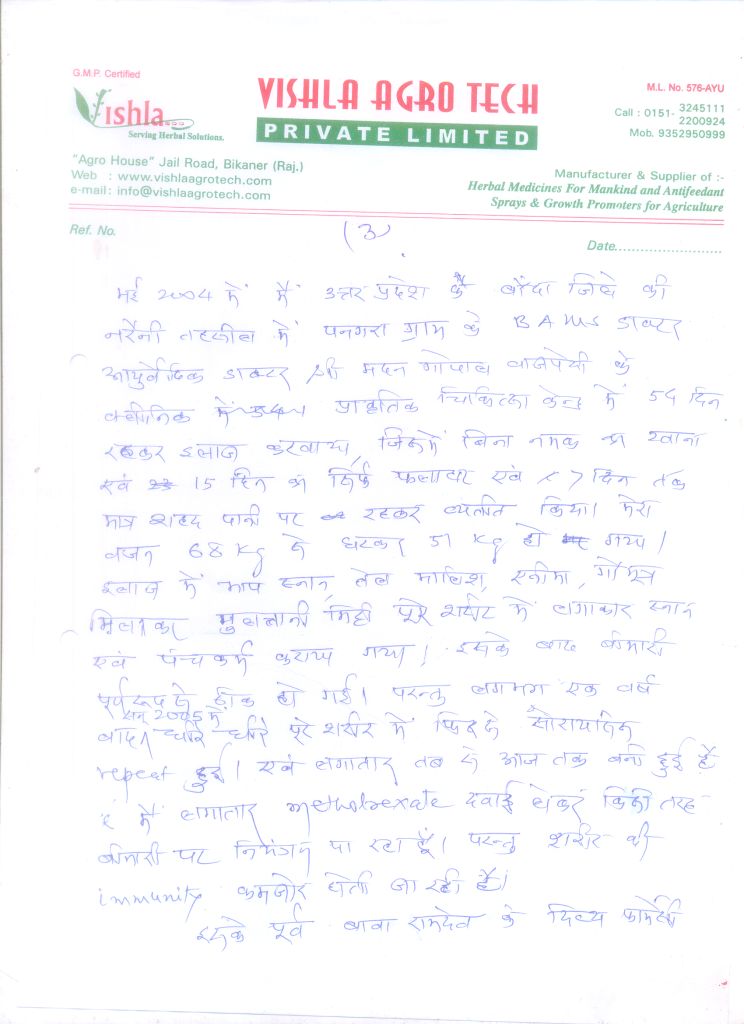 G.M.P. Certified
Vishla
Serving Herbal Solutions.
VISHLA AGRO TECH
PRIVATE LIMITED
M.L. No. 576-AYU
Call : 0151- 3245111
2200924
Mob. 9352950999
"Agro House" Jail Road, Bikaner (Raj.)
Web : www.vishlaagrotech.com
e-mail: info@vishlaagrotech.com
Manufacturer & Supplier of :-
Herbal Medicines For Mankind and Antifeedant
Sprays & Growth Promoters for Agriculture
Ref. No.
(3)
Date........................
मई 2004 में मैं उत्तर प्रदेश के बाँदा जिले की
नरैनी तहसील में पनगरा ग्राम के BAMS डाक्टर
आयुर्वेदिक डाक्टर श्री मदन गोपाल वाजपेयी के
क्लीनिक में प्राकृतिक चिकित्सा केन्द्र में 54 दिन
रहकर इलाज करवाया, जिसमें बिना नमक का खाना
एवं 15 दिन सिर्फ फलाहार एवं 7 दिन तक
मात्र शहद पानी पर रहकर व्यतीत किया। मेरा
वजन 68 Kg से घटकर 51 Kg हो गया।
इलाज में भाप स्नान, तेल मालिश, एनीमा, गौमूत्र
मिलाकर मुलतानी मिट्टी पूरे शरीर में लगाकर स्नान
एवं पंचकर्म कराया गया। इसके बाद बीमारी
पूर्णरूप से ठीक हो गई। परन्तु लगभग एक वर्ष
बाद सन् 2005 में धीरे धीरे पूरे शरीर में फिर से सौरायसिस
repeat हुई। एवं लगातार तब से आज तक बनी हुई है
मैं लगातार methotrexate दवाई लेकर किसी तरह
बीमारी पर नियंत्रण पा रहा हूँ। परन्तु शरीर की
immunity कमजोर होती जा रही है।
इसके पूर्व बाबा रामदेव के दिव्य फार्मेसी